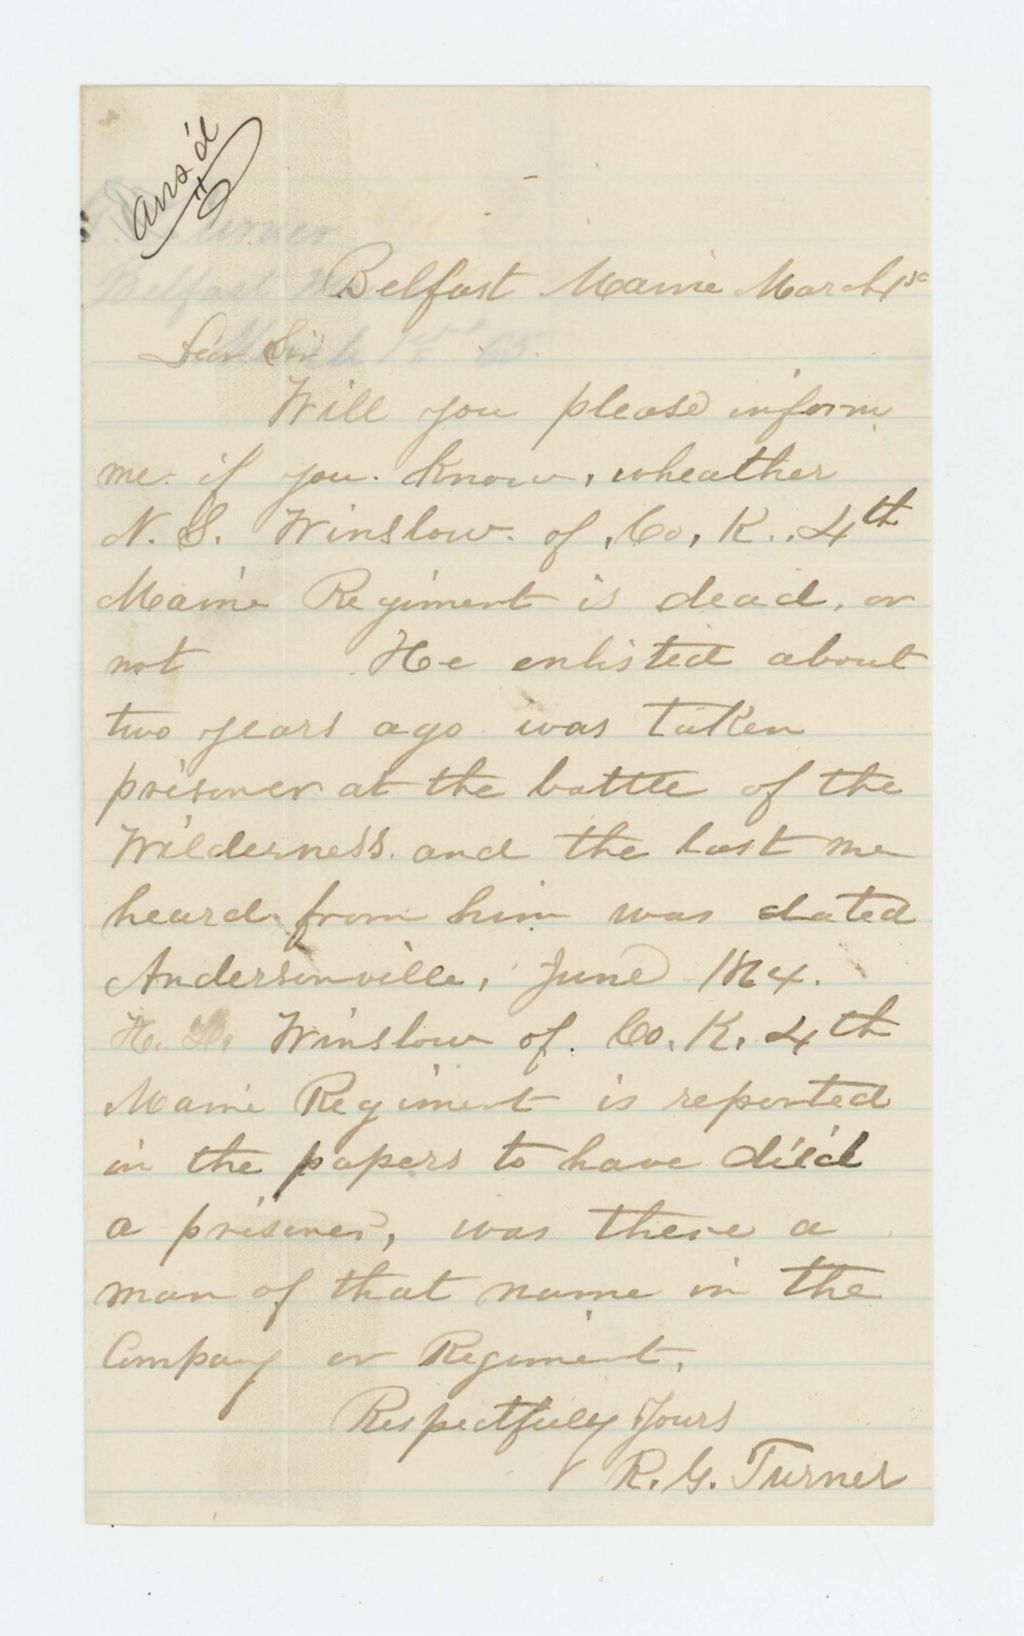 ans'd
Belfast Maine March 1st
Dear Sir
Will you please inform
me. if you. know, wheather
N. S. Winslow. of, Co, K., 4th
Maine Regiment is dead, or
not He enlisted about
two years ago was taken
prisoner at the battle of the
Wilderness. and the last we
heard from him was dated
Andersonville, June 1864.
H. Winslow of. Co. K, 4th
Maine Regiment is reported
in the papers to have died
a prisoner, was there a
man of that name in the
Company or Regiment,
Respectfully Yours
R. G. Turner